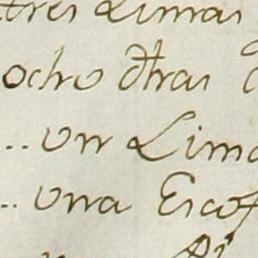 tres Limas
ocho dhas
.. Un Lima
.. Una Escof